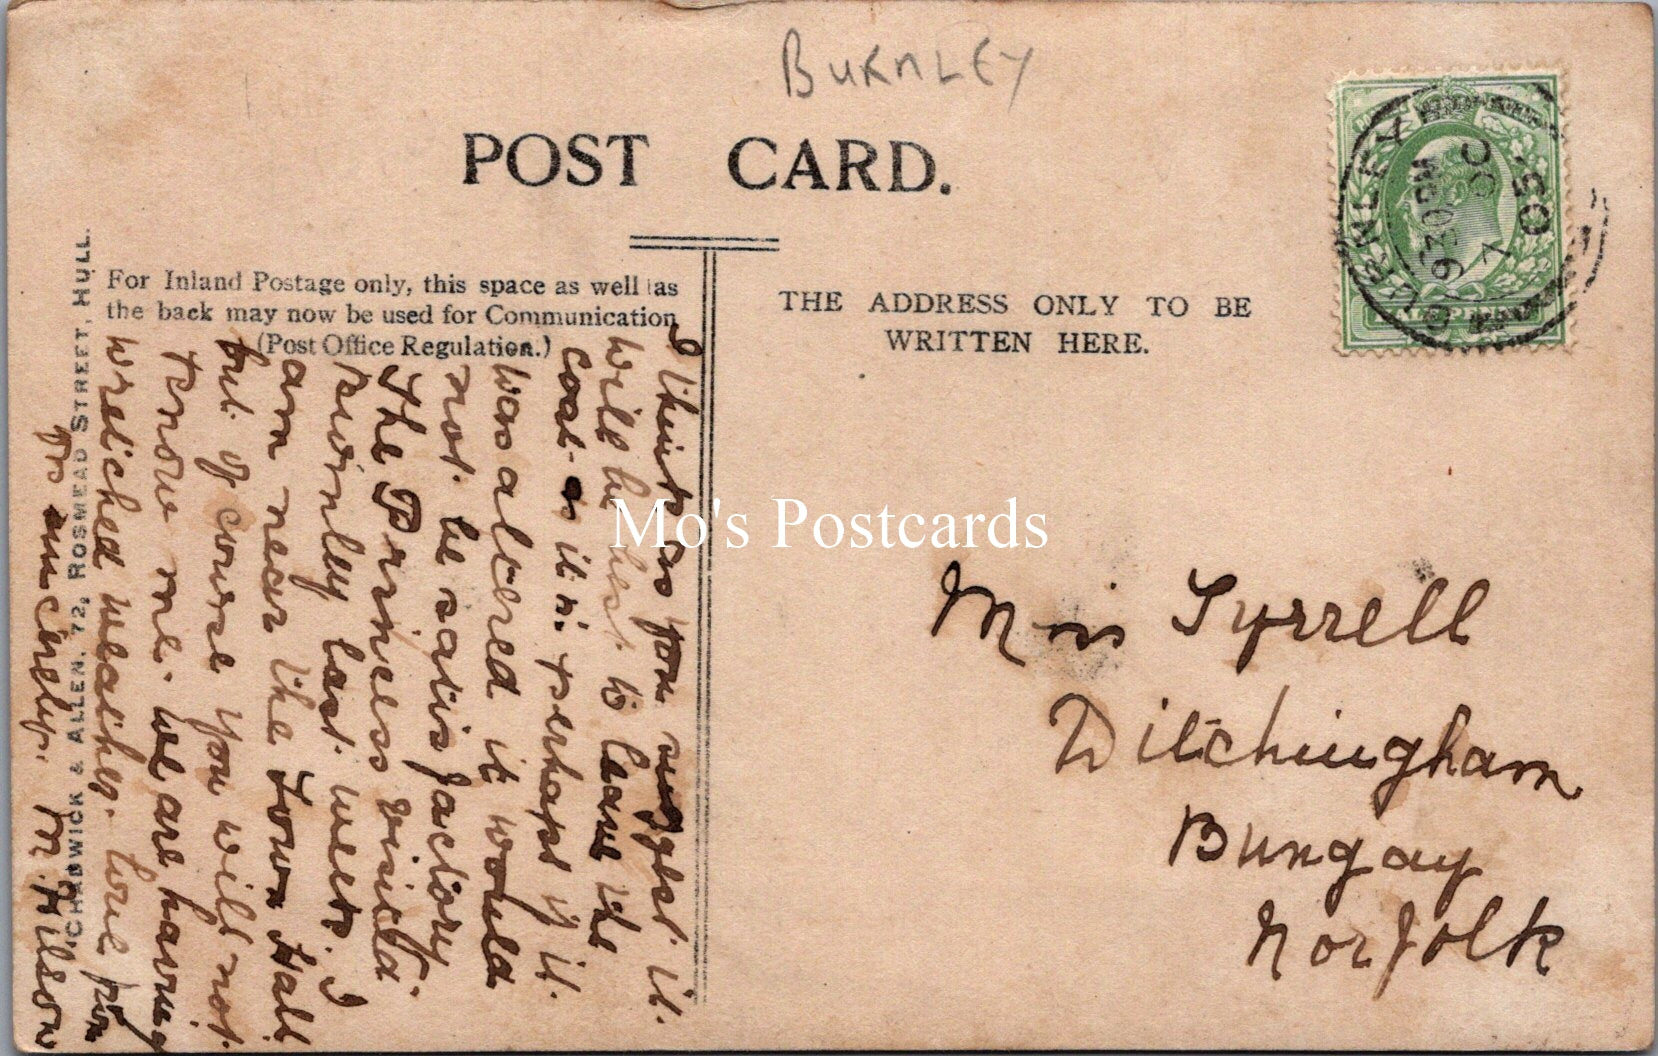 BURNLEY
POST CARD.
For Inland Postage only, this space as well as
the back may now be used for Communication
(Post Office Regulation.)
THE ADDRESS ONLY TO BE
WRITTEN HERE.
BURNLEY
9 30 PM
7 OC
05
CHADWICK & ALLEN, 72, ROSMEAD STREET, HULL.
I think as you suggest it
will be best to leave the
coat as it is. perhaps if it
was altered it would
not be satisfactory
The Princess visited
Burnley last week. I
am near the Town Hall
but of course you will not
know me. we are having
wretched weather. love from
yrs sincerely. M. Wilson
Miss Tyrrell
Ditchingham
Bungay
Norfolk
Mo's Postcards